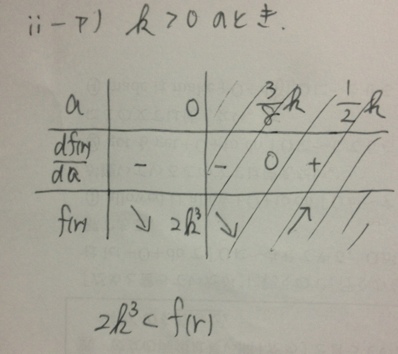 ii-ア) k>0 のとき.
a 0 3/8k 1/2k
df(r)/da - - 0 +
f(r) ↘ 2k³ ↘ ↗
2k³ < f(r)